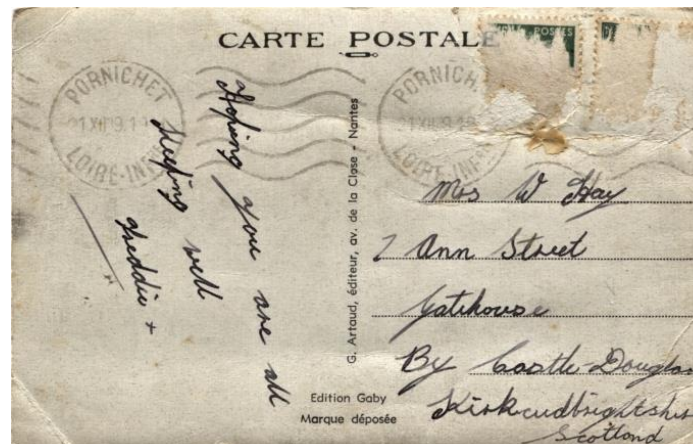 CARTE POSTALE
POSTES
PORNICHET
LOIRE-INFRE
PORNICHET
LOIRE-INFRE
Hoping you are all
keeping well
Freddie +
G. Artaud, éditeur, av. de la Close - Nantes
Edition Gaby
Marque déposée
Mrs W Hay
7 Ann Street
Gatehouse
By Castle-Douglas
Kirkcudbrightshire
Scotland